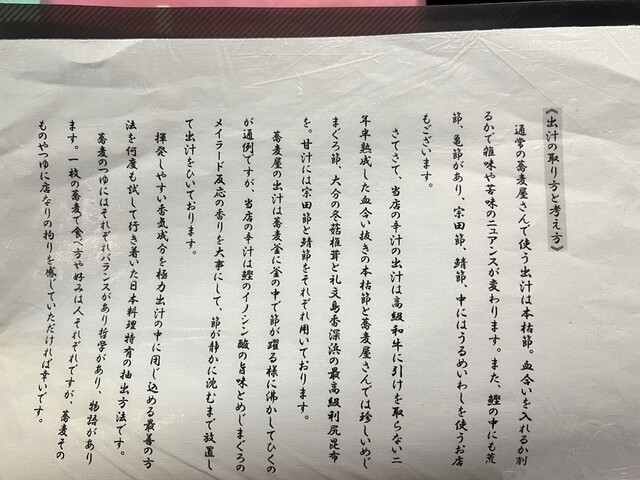 《出汁の取り方と考え方》
通常の蕎麦屋さんで使う出汁は本枯節。血合いを入れるか削
るかで雑味や苦味のニュアンスが変わります。また、鰹の中にも荒
節、亀節があり、宗田節、鯖節、中にはうるめいわしを使うお店
もございます。
さてさて、当店の辛汁の出汁は高級和牛に引けを取らない二
年半熟成した血合い抜きの本枯節と蕎麦屋さんでは珍しいめじ
まぐろ節、大分の冬菇椎茸と礼文島香深浜の最高級利尻昆布
を。甘汁には宗田節と鯖節をそれぞれ用いております。
蕎麦屋の出汁は蕎麦釜に釜の中で節が躍る様に沸かしてひくの
が通例ですが、当店の辛汁は鰹のイノシン酸の旨味とめじまぐろの
メイラード反応の香りを大事にして、節が静かに沈むまで放置し
て出汁をひいております。
揮発しやすい香気成分を極力出汁の中に閉じ込める最善の方
法を何度も試して行き着いた日本料理特有の抽出方法です。
蕎麦のつゆにはそれぞれバランスがあり哲学があり、物語があり
ます。一枚の蕎麦で食べ方や好みは人それぞれですが、蕎麦その
ものやつゆに店なりの拘りを感じていただければ幸いです。